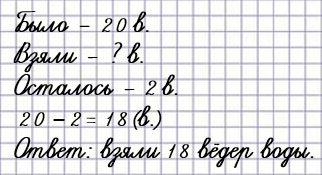 Было – 20 в.
Взяли – ? в.
Осталось – 2 в.
20 – 2 = 18 (в.)
Ответ: взяли 18 вёдер воды.